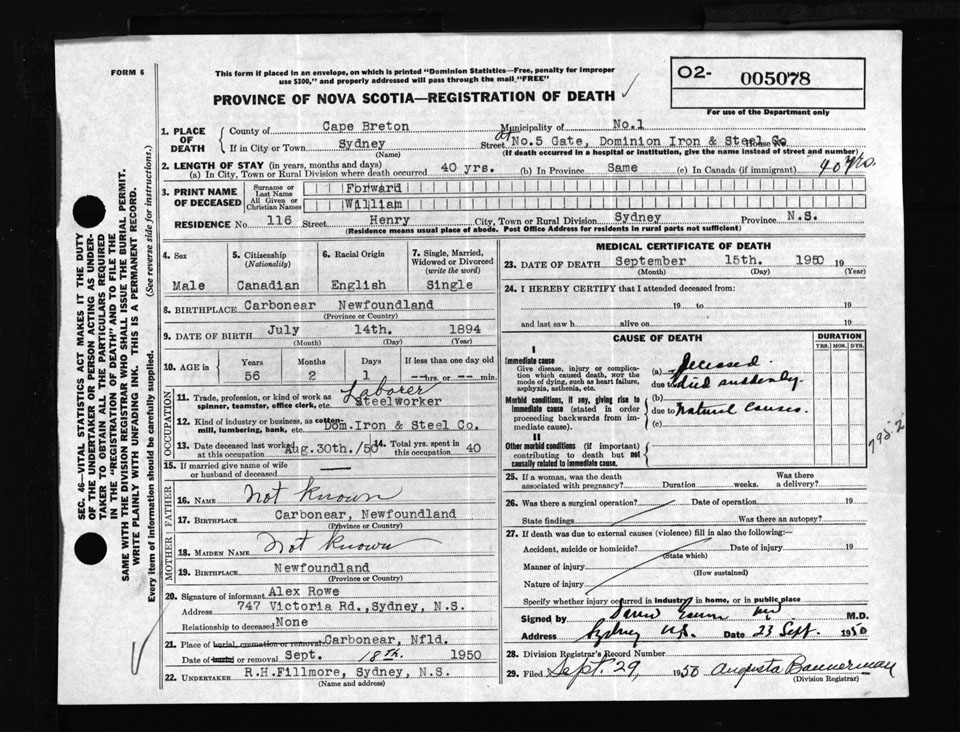 FORM 6
This form if placed in an envelope, on which is printed "Dominion Statistics—Free, penalty for improper
use $300," and properly addressed will pass through the mail "FREE"
O2- 005078
For use of the Department only
PROVINCE OF NOVA SCOTIA—REGISTRATION OF DEATH ✓
1. PLACE OF DEATH { County of Cape Breton Municipality of No.1
If in City or Town Sydney (Name) Street at No.5 Gate, Dominion Iron & Steel Co House No.
(If death occurred in a hospital or institution, give the name instead of street and number)
2. LENGTH OF STAY (in years, months and days)
(a) In City, Town or Rural Division where death occurred 40 yrs. (b) In Province Same (c) In Canada (if immigrant) 40 yrs.
3. PRINT NAME OF DECEASED { Surname or Last Name Forward
All Given or Christian Names William
RESIDENCE No. 116 Street Henry City, Town or Rural Division Sydney Province N.S.
(Residence means usual place of abode. Post Office Address for residents in rural parts not sufficient)
4. Sex Male
5. Citizenship (Nationality) Canadian
6. Racial Origin English
7. Single, Married, Widowed or Divorced (write the word) Single
8. BIRTHPLACE Carbonear Newfoundland
(Province or Country)
9. DATE OF BIRTH July 14th. 1894
(Month) (Day) (Year)
10. AGE in { Years 56 Months 2 Days 1 If less than one day old --hrs. or -- min.
OCCUPATION
11. Trade, profession, or kind of work as spinner, teamster, office clerk, etc. Laborer steelworker
12. Kind of industry or business, as cotton-mill, lumbering, bank, etc. Dom.Iron & Steel Co.
13. Date deceased last worked at this occupation Aug.30th./50
14. Total yrs. spent in this occupation 40
15. If married give name of wife or husband of deceased —
FATHER
16. NAME Not Known
17. BIRTHPLACE Carbonear, Newfoundland
(Province or Country)
MOTHER
18. MAIDEN NAME Not Known
19. BIRTHPLACE Newfoundland
(Province or Country)
20. Signature of informant Alex Rowe
Address 747 Victoria Rd.,Sydney, N.S.
Relationship to deceased None
21. Place of burial, cremation or removal Carbonear, Nfld.
Date of burial or removal Sept. 18th. 1950
22. UNDERTAKER R.H.Fillmore, Sydney, N.S.
(Name and address)
MEDICAL CERTIFICATE OF DEATH
23. DATE OF DEATH September 15th. 1950 19
(Month) (Day) (Year)
24. I HEREBY CERTIFY that I attended deceased from:
19 to 19
and last saw h alive on 19
CAUSE OF DEATH
DURATION
YRS. MOS. DYS.
I
Immediate cause
Give disease, injury or complication which caused death, NOT the mode of dying, such as heart failure, asphyxia, asthenia, etc.
(a) Deceased
due to died suddenly
Morbid conditions, if any, giving rise to immediate cause (stated in order proceeding backwards from immediate cause).
(b)
due to Natural Causes.
(c)
II
Other morbid conditions (if important) contributing to death but not causally related to immediate cause.
7952
25. If a woman, was the death associated with pregnancy? Duration weeks. Was there a delivery?
26. Was there a surgical operation? Date of operation 19
State findings Was there an autopsy?
27. If death was due to external causes (violence) fill in also the following:—
Accident, suicide or homicide? Date of injury 19
(State which)
Manner of injury
(How sustained)
Nature of injury
Specify whether injury occurred in industry, in home, or in public place
Signed by M.D.
Address Sydney N.S. Date 23 Sept. 1950
28. Division Registrar's Record Number
29. Filed Sept. 29, 1950 Augusta Bannerman
(Division Registrar)
SEC. 46—VITAL STATISTICS ACT MAKES IT THE DUTY
OF THE UNDERTAKER OR PERSON ACTING AS UNDER-
TAKER TO OBTAIN ALL THE PARTICULARS REQUIRED
IN THE "REGISTRATION OF DEATH" AND TO FILE THE
SAME WITH THE DIVISION REGISTRAR WHO SHALL ISSUE THE BURIAL PERMIT.
WRITE PLAINLY WITH UNFADING INK. THIS IS A PERMANENT RECORD.
Every item of information should be carefully supplied. (See reverse side for instructions.)